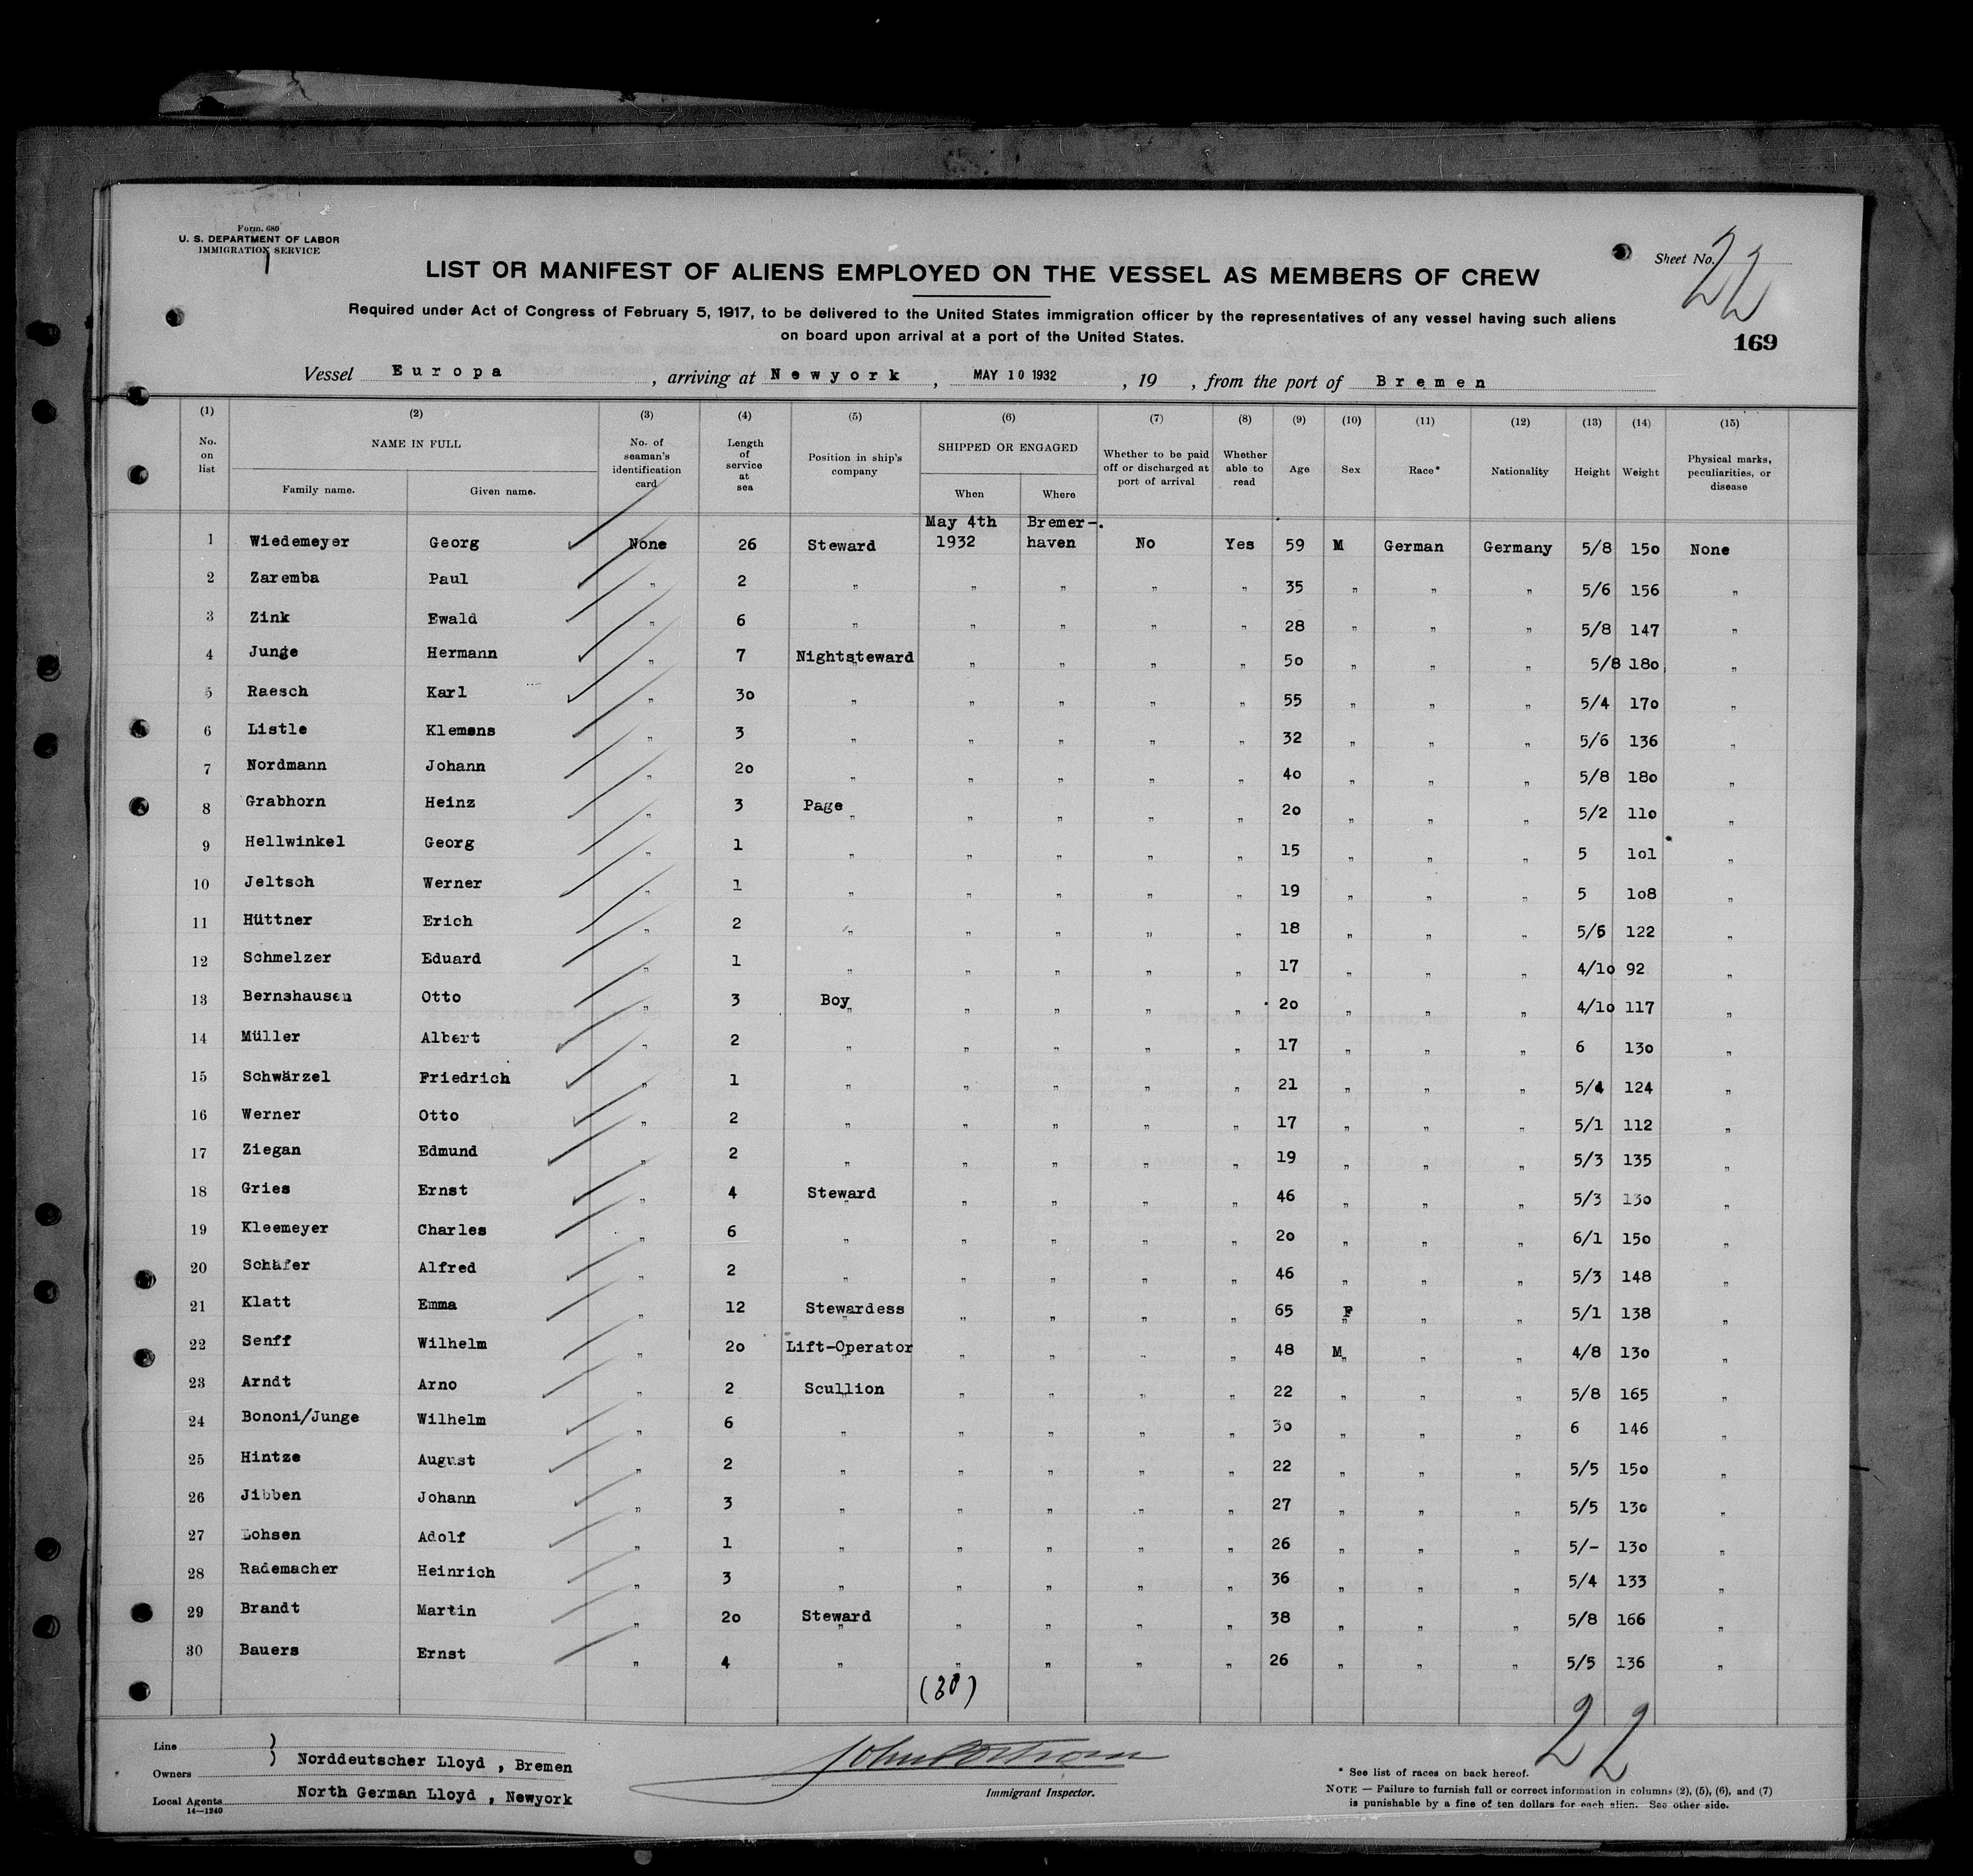 Form. 680
U. S. DEPARTMENT OF LABOR
IMMIGRATION SERVICE
Sheet No. 22
LIST OR MANIFEST OF ALIENS EMPLOYED ON THE VESSEL AS MEMBERS OF CREW
Required under Act of Congress of February 5, 1917, to be delivered to the United States immigration officer by the representatives of any vessel having such aliens
on board upon arrival at a port of the United States.
169
Vessel Europa, arriving at Newyork, MAY 10 1932, 19 , from the port of Bremen
(1) (2) (3) (4) (5) (6) (7) (8) (9) (10) (11) (12) (13) (14) (15)
No. on list NAME IN FULL Family name. Given name. No. of seaman's identification card Length of service at sea Position in ship's company SHIPPED OR ENGAGED When Where Whether to be paid off or discharged at port of arrival Whether able to read Age Sex Race* Nationality Height Weight Physical marks, peculiarities, or disease
1 Wiedemeyer Georg None 26 Steward May 4th 1932 Bremer-haven No Yes 59 M German Germany 5/8 150 None
2 Zaremba Paul " 2 " " " " " 35 " " " 5/6 156 "
3 Zink Ewald " 6 " " " " " 28 " " " 5/8 147 "
4 Junge Hermann " 7 Nightsteward " " " " 50 " " " 5/8 180 "
5 Raesch Karl " 30 " " " " " 55 " " " 5/4 170 "
6 Listle Klemens " 3 " " " " " 32 " " " 5/6 136 "
7 Nordmann Johann " 20 " " " " " 40 " " " 5/8 180 "
8 Grabhorn Heinz " 3 Page " " " " 20 " " " 5/2 110 "
9 Hellwinkel Georg " 1 " " " " " 15 " " " 5 101 "
10 Jeltsch Werner " 1 " " " " " 19 " " " 5 108 "
11 Hüttner Erich " 2 " " " " " 18 " " " 5/6 122 "
12 Schmelzer Eduard " 1 " " " " " 17 " " " 4/10 92 "
13 Bernshausen Otto " 3 Boy " " " " 20 " " " 4/10 117 "
14 Müller Albert " 2 " " " " " 17 " " " 6 130 "
15 Schwärzel Friedrich " 1 " " " " " 21 " " " 5/4 124 "
16 Werner Otto " 2 " " " " " 17 " " " 5/1 112 "
17 Ziegan Edmund " 2 " " " " " 19 " " " 5/3 135 "
18 Gries Ernst " 4 Steward " " " " 46 " " " 5/3 130 "
19 Kleemeyer Charles " 6 " " " " " 20 " " " 6/1 150 "
20 Schäfer Alfred " 2 " " " " " 46 " " " 5/3 148 "
21 Klatt Emma " 12 Stewardess " " " " 65 F " " 5/1 138 "
22 Senff Wilhelm " 20 Lift-Operator " " " " 48 M " " 4/8 130 "
23 Arndt Arno " 2 Scullion " " " " 22 " " " 5/8 165 "
24 Bononi/Junge Wilhelm " 6 " " " " " 30 " " " 6 146 "
25 Hintze August " 2 " " " " " 22 " " " 5/5 150 "
26 Jibben Johann " 3 " " " " " 27 " " " 5/5 130 "
27 Lohsen Adolf " 1 " " " " " 26 " " " 5/- 130 "
28 Rademacher Heinrich " 3 " " " " " 36 " " " 5/4 133 "
29 Brandt Martin " 20 Steward " " " " 38 " " " 5/8 166 "
30 Bauers Ernst " 4 " " " " " 26 " " " 5/5 136 "
(30)
22
Line
Owners Norddeutscher Lloyd , Bremen
Local Agents North German Lloyd , Newyork
14—1240
Immigrant Inspector.
* See list of races on back hereof.
NOTE — Failure to furnish full or correct information in columns (2), (5), (6), and (7)
is punishable by a fine of ten dollars for each alien. See other side.